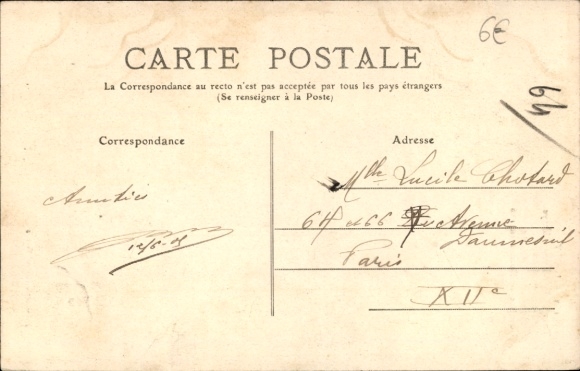 6€
CARTE POSTALE
La Correspondance au recto n'est pas acceptée par tous les pays étrangers
(Se renseigner à la Poste)
49
Correspondance
Adresse
Amitiés
Mlle Lucile Chotard
64 et 66 Avenue
Daumesnil
Paris
XIIe